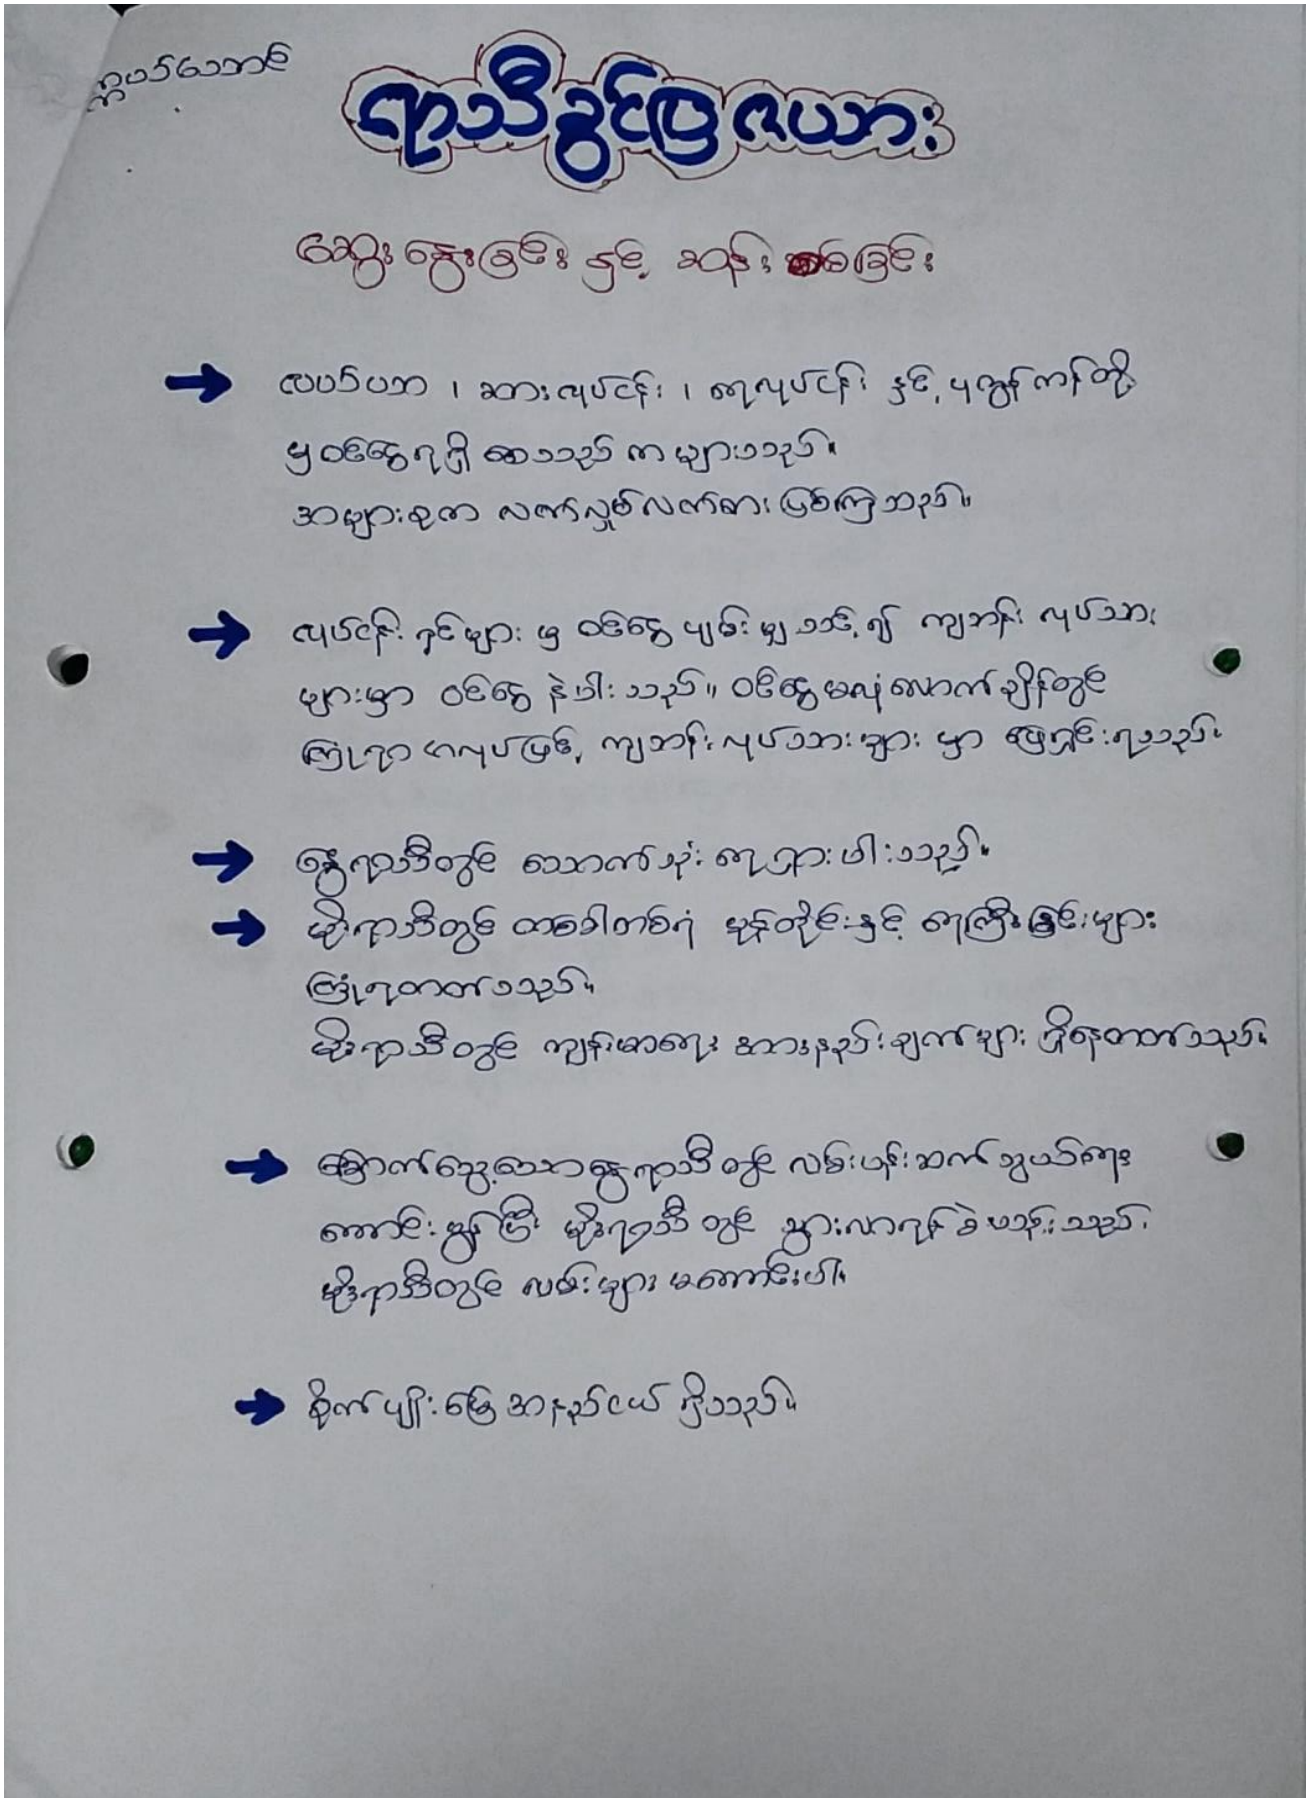 ရာသီခွင်ပြဇယား
ဆွေးနွေးခြင်း နှင့် ဆန်းစစ်ခြင်း
လယ်ယာ ၊ ဆားလုပ်ငန်း ၊ ရေလုပ်ငန်း နှင့် ပုဇွန်ကန်တို့
မှ ဝင်ငွေရရှိ သောသည် က များသည်။
အများစုက လက်လုပ်လက်စား ဖြစ်ကြသည်။
လုပ်ငန်း ရှင်များ မှ ဝင်ငွေ မျှမျှ သင့်၍ ကျဘန်း လုပ်သား
များမှာ ဝင်ငွေ နဲပါးသည်။ ဝင်ငွေမလုံလောက်ချိန်တွင်
ကြုံရာ ကလုပ်ဖြင့် ကျဘန်း လုပ်သားများ မှာ ဖြေရှင်းရသည်။
နွေရာသီတွင် သောက်သုံး ရေရှားပါးသည်။
မိုးရာသီတွင် တစ်ခါတစ်ရံ မုန်တိုင်းနှင့် ရေကြီးခြင်းများ
ကြုံရတတ်သည်။
မိုးရာသီတွင် ကျန်းမာရေး အားနည်းချက်များ ရှိနေတတ်သည်။
ခြောက်သွေ့သောနွေရာသီ တွင် လမ်းပန်းဆက်သွယ်ရေး
ကောင်းမွန်ပြီး မိုးရာသီ တွင် သွားလာရန် ခဲယဉ်းသည်။
မိုးရာသီတွင် လမ်းများ မကောင်းပါ။
စိုက်ပျိုးမြေ အနည်ငယ် ရှိသည်။